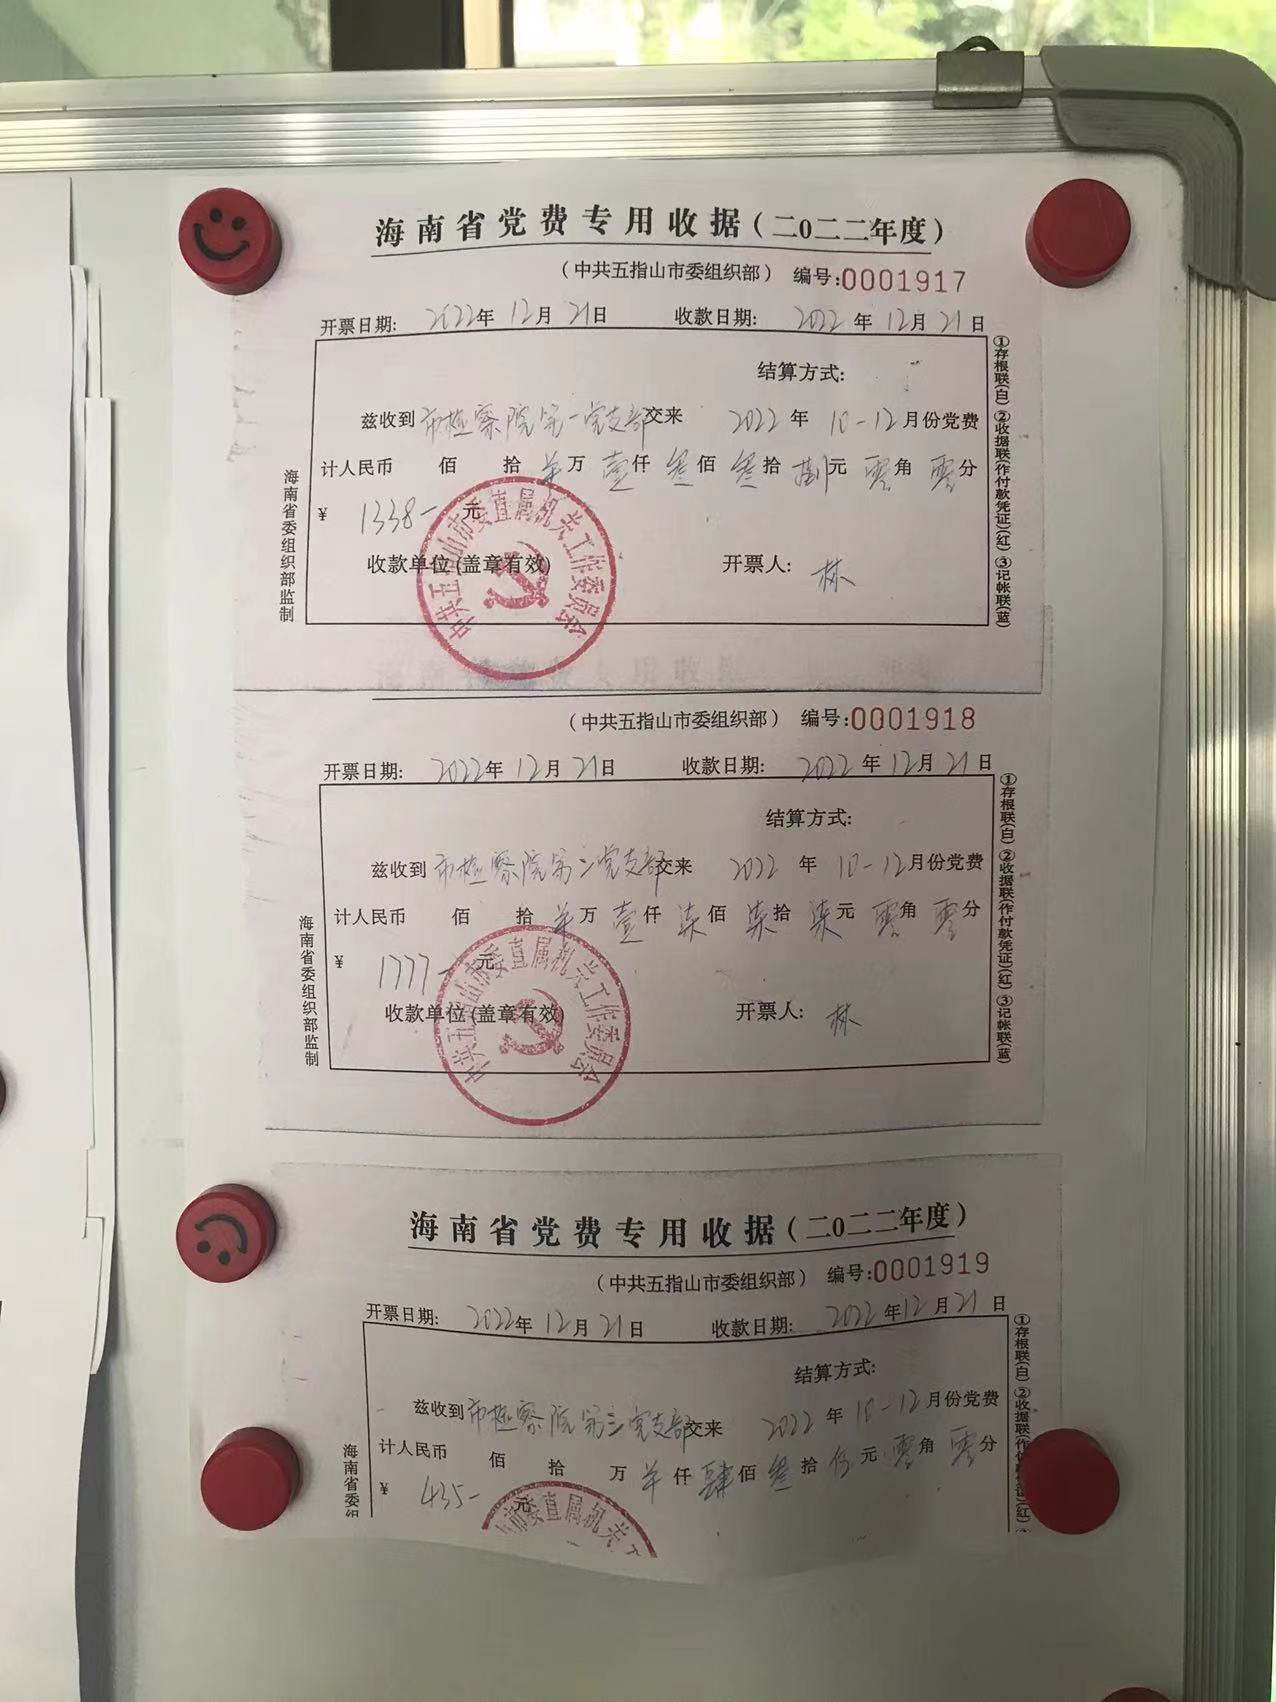 海南省党费专用收据(二0二二年度)
(中共五指山市委组织部) 编号:0001917
开票日期: 2022年12月21日 收款日期: 2022年12月21日
结算方式:
兹收到市检察院第一党支部交来 2022年 10-12月份党费
计人民币 佰 拾 羊万 壹仟 叁佰 叁拾 捌元 零角 零分
¥ 1338- 元
收款单位(盖章有效) 开票人: 林
中共五指山市委直属机关工作委员会
海南省委组织部监制
①存根联(白)②收据联(作付款凭证)(红)③记帐联(蓝)
(中共五指山市委组织部) 编号:0001918
开票日期: 2022年12月21日 收款日期: 2022年12月21日
结算方式:
兹收到市检察院第二党支部交来 2022年 10-12月份党费
计人民币 佰 拾 羊万 壹仟 柒佰 柒拾 柒元 零角 零分
¥ 1777- 元
收款单位(盖章有效) 开票人: 林
中共五指山市委直属机关工作委员会
海南省委组织部监制
①存根联(白)②收据联(作付款凭证)(红)③记帐联(蓝)
海南省党费专用收据(二0二二年度)
(中共五指山市委组织部) 编号:0001919
开票日期: 2022年12月21日 收款日期: 2022年12月21日
结算方式:
兹收到市检察院第三党支部交来 2022年 10-12月份党费
计人民币 佰 拾 万 羊仟 肆佰 叁拾 伍元 零角 零分
¥ 435- 元
山市委直属机关工
海南省委组
①存根联(白)②收据联(作付款凭证)(红)